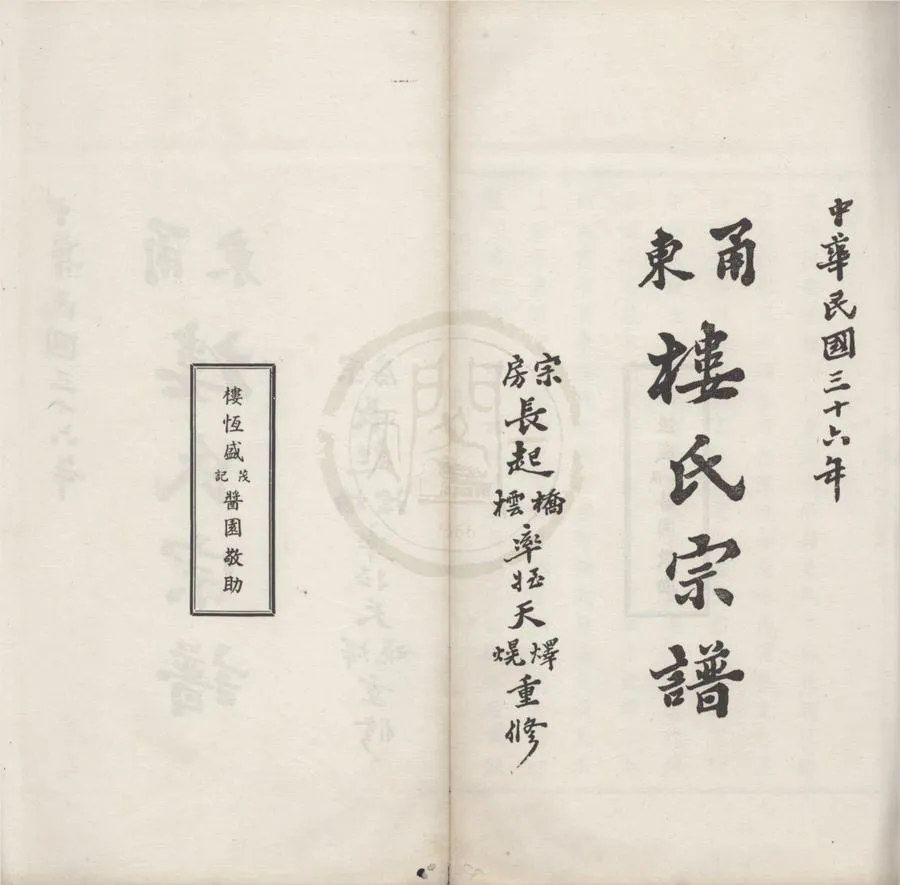 中華民國三十六年
甬東樓氏宗譜
宗房長起橋樰率姪天燡熀重修
樓恆盛茂記醬園敬助